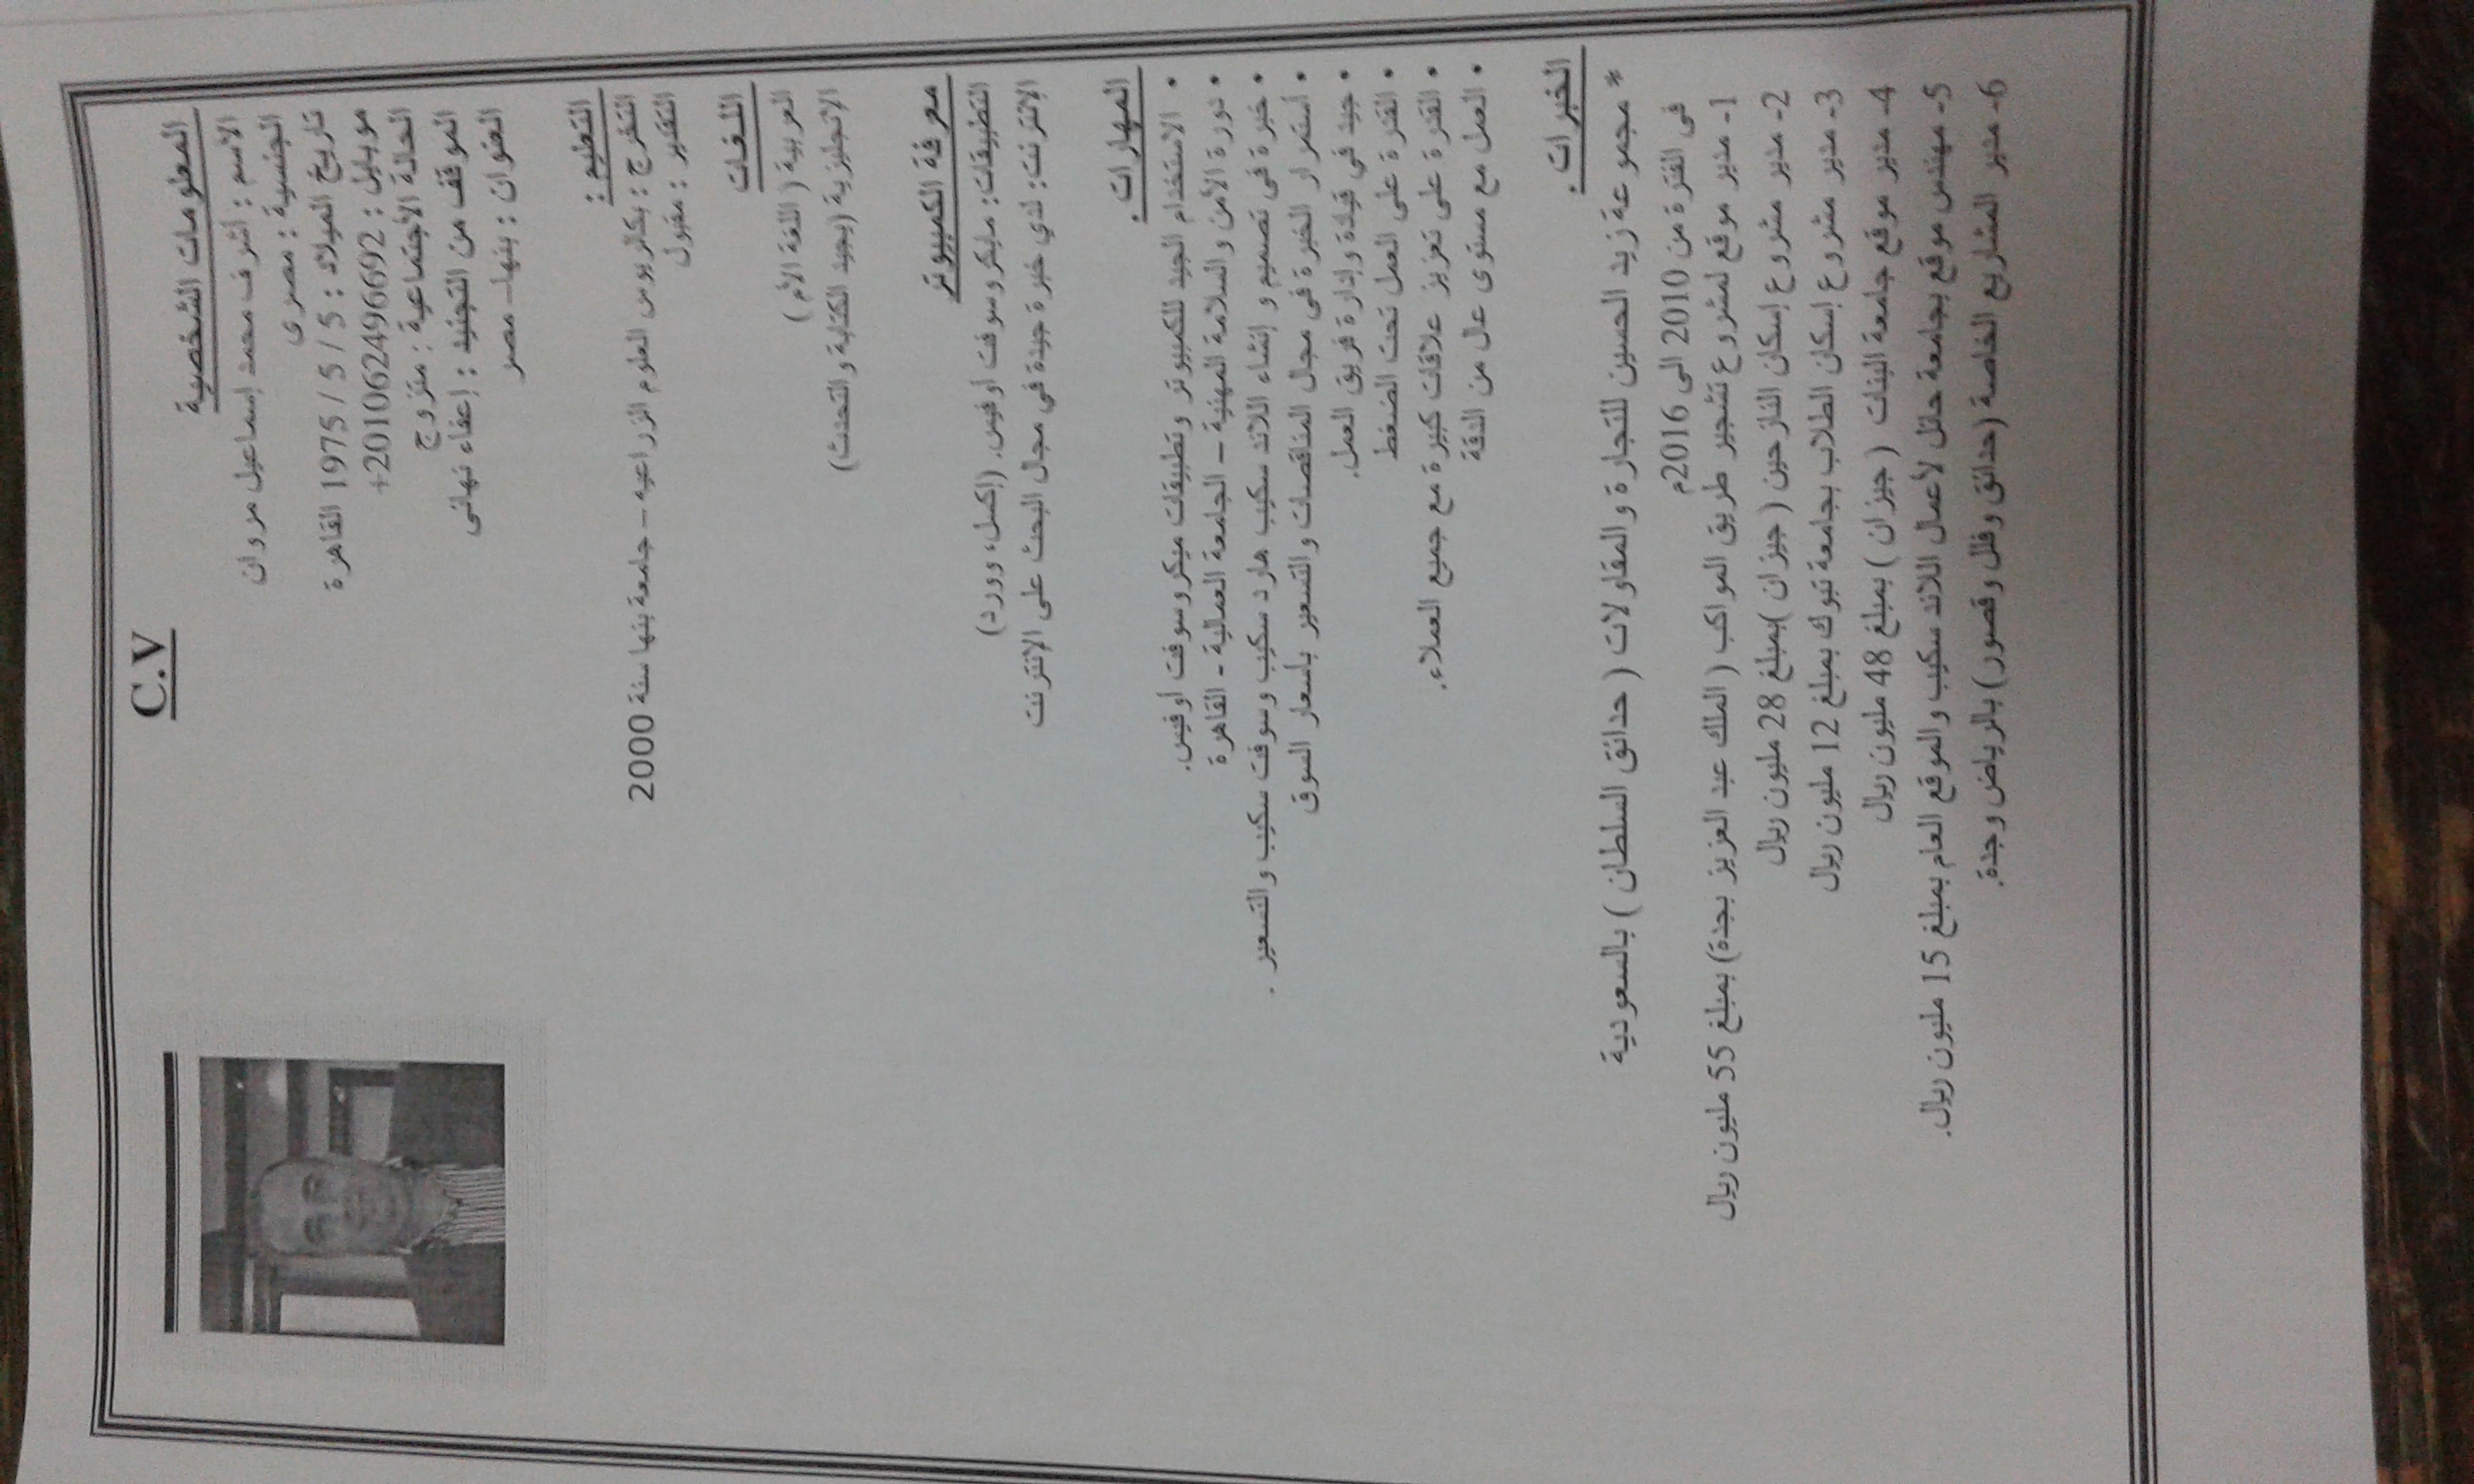 C.V
المعلومات الشخصية
الاسم : أشرف محمد إسماعيل مروان
الجنسية : مصرى
تاريخ الميلاد : 5 / 5 / 1975 القاهرة
موبايل : 201062496692+
الحالة الأجتماعية : متزوج
الموقف من التجنيد : إعفاء نهائى
العنوان : بنها – مصر
التعليم :
التخرج : بكالريوس العلوم الزراعيه – جامعة بنها سنة 2000
التقدير : مقبول
اللغات
العربية ( اللغة الأم )
الإنجليزية (بجيد الكتابة والتحدث)
معرفة الكمبيوتر
التطبيقات: مايكروسوفت أوفيس. (إكسل، وورد)
الإنترنت: لدي خبرة جيدة في مجال البحث على الإنترنت
المهارات .
• الاستخدام الجيد للكمبيوتر وتطبيقات ميكروسوفت أوفيس.
• دورة الأمن والسلامة المهنية – الجامعة العمالية - القاهرة
• خبرة فى تصميم و إنشاء اللاند سكيب هارد سكيب وسوفت سكيب والتسعير .
• أستمرار الخبرة فى مجال المناقصات والتسعير بأسعار السوق
• جيد في قيادة وإدارة فريق العمل.
• القدرة على العمل تحت الضغط
• القدرة على تعزيز علاقات كبيرة مع جميع العملاء.
• العمل مع مستوى عال من الدقة
الخبرات .
* مجموعة زيد الحسين للتجارة والمقاولات ( حدائق السلطان ) بالسعودية
فى الفترة من 2010 الى 2016م
1- مدير موقع لمشروع تشجير طريق المواكب ( الملك عبد العزيز بجدة) بمبلغ 55 مليون ريال
2- مدير مشروع إسكان النازحين ( جيزان )بمبلغ 28 مليون ريال
3- مدير مشروع إسكان الطلاب بجامعة تبوك بمبلغ 12 مليون ريال
4- مدير موقع جامعة البنات ( جيزان ) بمبلغ 48 مليون ريال
5- مهندس موقع بجامعة حائل لأعمال اللاند سكيب والموقع العام بمبلغ 15 مليون ريال.
6- مدير المشاريع الخاصة (حدائق وفلل وقصور) بالرياض وجدة.